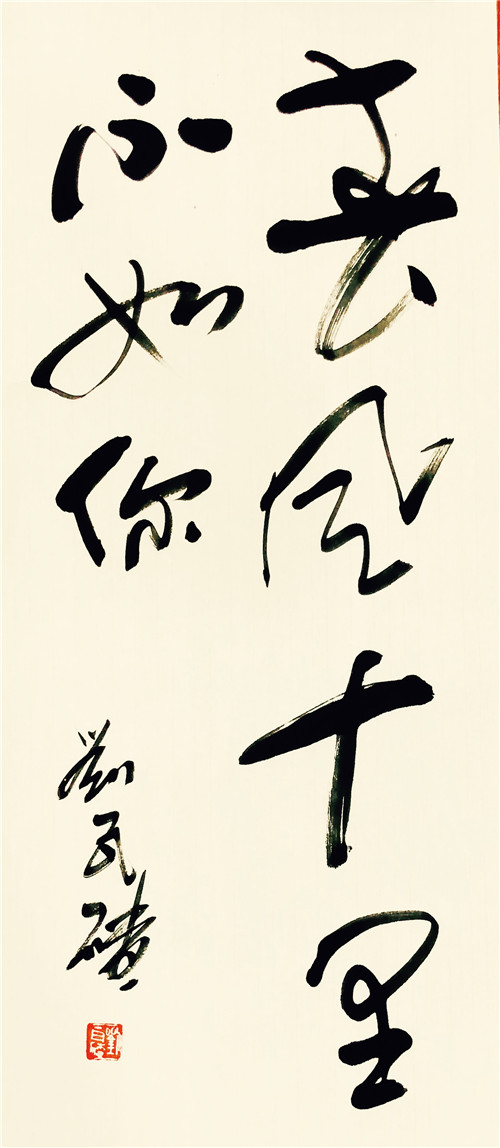 春风十里
不如你
刘民